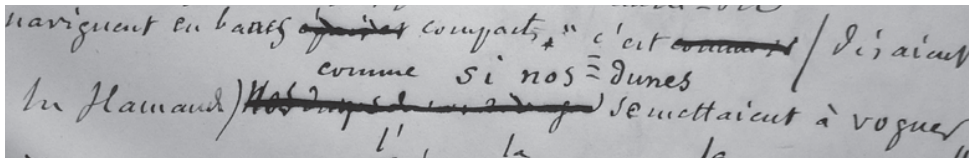 naviguent en bancs épais compacts, " c'est comme si / disaient
comme si nos dunes
les Flamands) se mettaient à voguer
l' la le